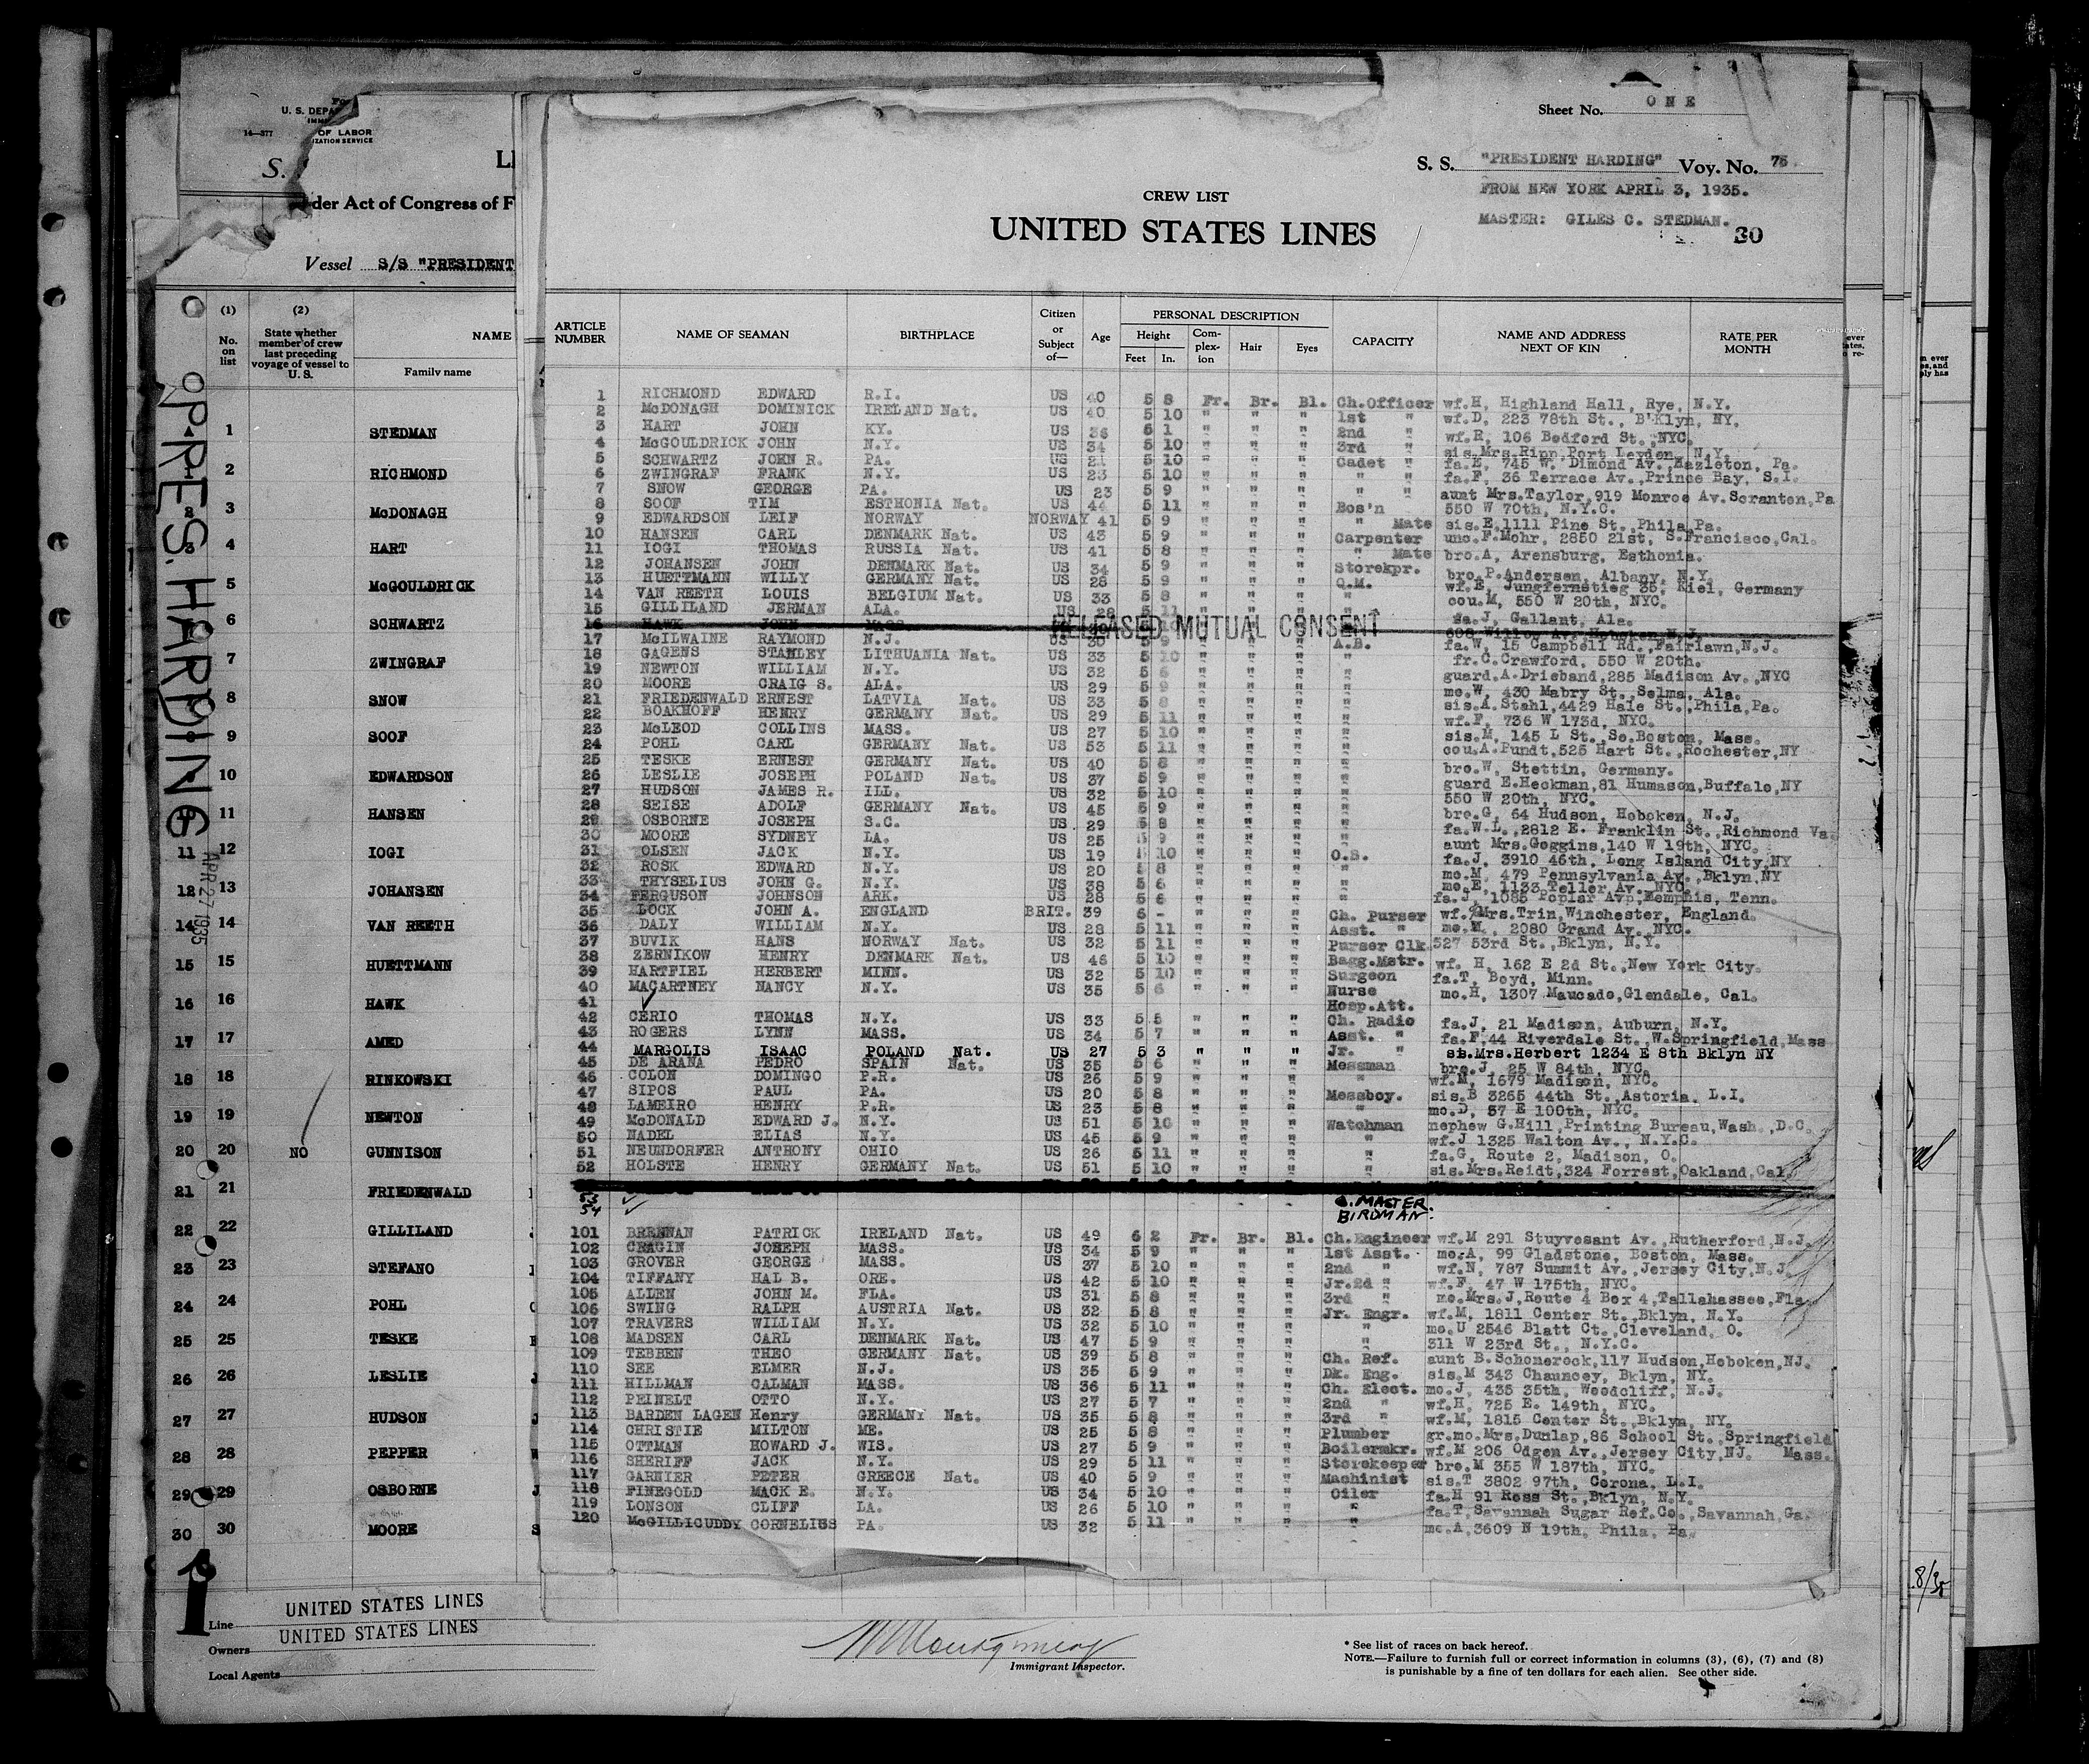 PRES. HARDING
APR 27 1935
U. S. DEPA
OF LABOR
IZATION SERVICE
14—377
S.
LI
der Act of Congress of F
Vessel S/S "PRESIDENT
(1) (2)
No. on list
State whether member of crew last preceding voyage of vessel to U. S.
NAME
Family name
1 STEDMAN
2 RICHMOND
3 McDONAGH
4 HART
5 McGOULDRICK
6 SCHWARTZ
7 ZWINGRAF
8 SNOW
9 SOOF
10 EDWARDSON
11 HANSEN
11 12 IOGI
12 13 JOHANSEN
14 14 VAN REETH
15 15 HUETTMANN
16 16 HAWK
17 17 AMED
18 18 RINKOWSKI
19 19 NEWTON
20 20 NO GUNNISON
21 21 FRIEDENWALD
22 22 GILLILAND
23 23 STEFANO
24 24 POHL
25 25 TESKE
26 26 LESLIE
27 27 HUDSON
28 28 PEPPER
29 29 OSBORNE
30 30 MOORE
1
Line UNITED STATES LINES
Owners UNITED STATES LINES
Local Agents
Sheet No. ONE
S. S. "PRESIDENT HARDING" Voy. No. 75
FROM NEW YORK APRIL 3, 1935.
MASTER: GILES C. STEDMAN.
30
CREW LIST
UNITED STATES LINES
ARTICLE NUMBER NAME OF SEAMAN BIRTHPLACE Citizen or Subject of— Age PERSONAL DESCRIPTION Height Feet In. Complexion Hair Eyes CAPACITY NAME AND ADDRESS NEXT OF KIN RATE PER MONTH
1 RICHMOND EDWARD R.I. US 40 5 8 Fr. Br. Bl. Ch.Officer wf.H, Highland Hall, Rye, N.Y.
2 McDONAGH DOMINICK IRELAND Nat. US 40 5 10 " " " 1st " wf.D, 223 78th St., B'Klyn, NY.
3 HART JOHN KY. US 36 6 1 " " " 2nd " wf.R, 106 Bedford St.,NYC.
4 McGOULDRICK JOHN N.Y. US 34 5 10 " " " 3rd " sis.Mrs.Ripp,Port Leyden, N.Y.
5 SCHWARTZ JOHN R. PA. US 21 5 10 " " " Cadet " fa.E, 745 W. Dimond Av.,Hazleton, Pa.
6 ZWINGRAF FRANK N.Y. US 23 5 10 " " " " " fa.F, 36 Terrace Av.,Prince Bay, S.I.
7 SNOW GEORGE PA. US 23 5 9 " " " " " aunt Mrs.Taylor,919 Monroe Av.Scranton,Pa
8 SOOF TIM ESTHONIA Nat. US 44 5 11 " " " Bos'n 550 W 70th, N.Y.C.
9 EDWARDSON LEIF NORWAY NORWAY 41 5 9 " " " " Mate sis.E.1111 Pine St.,Phila Pa.
10 HANSEN CARL DENMARK Nat. US 43 5 9 " " " Carpenter unc.F.Mohr, 2850 21st, S.Francisco,Cal.
11 IOGI THOMAS RUSSIA Nat. US 41 5 8 " " " " Mate bro.A, Arensburg, Esthonia.
12 JOHANSEN JOHN DENMARK Nat. US 34 5 9 " " " Storekpr. bro.P.Andersen, Albany, N.Y.
13 HUETTMANN WILLY GERMANY Nat. US 28 5 9 " " " Q.M. wf.E, Jungfernstieg 36, Kiel, Germany
14 VAN REETH LOUIS BELGIUM Nat. US 33 5 8 " " " " cou.M, 550 W 20th, NYC.
15 GILLILAND JERMAN ALA. US 28 5 11 " " " " fa.J, Gallant, Ala.
16 HAWK JOHN MASS. RELEASED MUTUAL CONSENT
17 McILWAINE RAYMOND N.J. US 30 5 9 " " " A.B. fa.W, 15 Campbell Rd.,Fairlawn,N.J.
18 GAGENS STANLEY LITHUANIA Nat. US 33 5 10 " " " " fr.C.Crawford, 550 W 20th.
19 NEWTON WILLIAM N.Y. US 32 5 6 " " " " guard.A.Drieband,285 Madison Av.,NYC
20 MOORE CRAIG S. ALA. US 29 5 9 " " " " mo.W, 430 Mabry St.,Selma, Ala.
21 FRIEDENWALD ERNEST LATVIA Nat. US 33 5 8 " " " " sis.A.Stahl,4429 Hale St.,Phila,Pa.
22 BOAKHOFF HENRY GERMANY Nat. US 29 5 11 " " " " wf.F, 736 W 173d, NYC.
23 McLEOD COLLINS MASS. US 27 5 10 " " " " sis.M, 145 L St.,So.Boston, Mass.
24 POHL CARL GERMANY Nat. US 53 5 11 " " " " cou.A.Pundt,525 Hart St.,Rochester,NY
25 TESKE ERNEST GERMANY Nat. US 40 5 8 " " " " bro.W, Stettin, Germany.
26 LESLIE JOSEPH POLAND Nat. US 37 5 9 " " " " guard E.Heckman,81 Humason,Buffalo,NY
27 HUDSON JAMES R. ILL. US 32 5 10 " " " " 550 W 20th, NYC.
28 SEISE ADOLF GERMANY Nat. US 45 5 9 " " " " bro.G, 64 Hudson, Hoboken, N.J.
29 OSBORNE JOSEPH S.C. US 29 5 8 " " " " fa.W.L.,2812 E. Franklin St.,Richmond Va.
30 MOORE SYDNEY LA. US 25 5 9 " " " " aunt Mrs.Goggins,140 W 19th, NYC.
31 OLSEN JACK N.Y. US 19 5 10 " " " O.S. fa.J, 3910 46th, Long Island City,NY
32 ROSK EDWARD N.Y. US 20 5 8 " " " " mo.M, 479 Pennsylvania Av.,Bklyn,NY
33 THYSELIUS JOHN G. N.Y. US 38 5 6 " " " " mo.E, 1133 Teller Av.,NYC.
34 FERGUSON JOHNSON ARK. US 28 5 6 " " " " fa.J, 1085 Poplar Avp,Memphis, Tenn.
35 LOCK JOHN A. ENGLAND BRIT. 39 6 - " " " Ch. Purser wf. Mrs.Trin,Winchester, England.
36 DALY WILLIAM N.Y. US 28 5 11 " " " Asst. " mo.M, 2080 Grand Av.,NYC.
37 BUVIK HANS NORWAY Nat. US 32 5 11 " " " Purser Clk. 527 53rd St.,Bklyn, N.Y.
38 ZERNIKOW HENRY DENMARK Nat. US 46 5 10 " " " Bagg.Mstr. wf. H, 162 E 2d St.,New York City.
39 HARTFIEL HERBERT MINN. US 32 5 10 " " " Surgeon fa.T, Boyd, Minn.
40 MACARTNEY NANCY N.Y. US 35 5 6 " " " Nurse mo.H, 1307 Maucado,Glendale, Cal.
41 Hosp.Att.
42 CERIO THOMAS N.Y. US 33 5 5 " " " Ch. Radio fa.J, 21 Madison, Auburn, N.Y.
43 ROGERS LYNN MASS. US 34 5 7 " " " Asst. " fa.F,44 Riverdale St.,W.Springfield,Mass
44 MARGOLIS ISAAC POLAND Nat. US 27 5 3 " " " Jr. " sis.Mrs.Herbert 1234 E 8th Bklyn NY
45 DE ARANA PEDRO SPAIN Nat. US 35 5 6 " " " Messman bro.J, 25 W 84th, NYC.
46 COLON DOMINGO P.R. US 26 5 9 " " " " wf.M, 1679 Madison, NYC.
47 SIPOS PAUL PA. US 20 5 8 " " " Messboy. sis.B 3265 44th St.,Astoria, L.I.
48 LAMEIRO HENRY P.R. US 23 5 8 " " " " mo.D, 57 E 100th, NYC.
49 McDONALD EDWARD J. N.Y. US 51 5 10 " " " Watchman nephew G.Hill,Printing Bureau,Wash.,D.C.
50 NADEL ELIAS N.Y. US 45 5 9 " " " " wf.J 1325 Walton Av., N.Y.C.
51 NEUNDORFER ANTHONY OHIO US 26 5 11 " " " " fa.G, Route 2, Madison, O.
52 HOLSTE HENRY GERMANY Nat. US 51 5 10 " " " " sis.Mrs.Reidt,324 Forrest,Oakland,Cal.
53 C. MASTER.
54 BIRDMAN.
101 BRENNAN PATRICK IRELAND Nat. US 49 6 2 Fr. Br. Bl. Ch.Engineer wf.M 291 Stuyvesant Av.,Rutherford,N.J.
102 CRAGIN JOSEPH MASS. US 34 5 9 " " " 1st Asst. mo.A, 99 Gladstone, Boston, Mass.
103 GROVER GEORGE MASS. US 37 5 10 " " " 2nd " wf.N, 787 Summit Av.,Jersey City,N.J.
104 TIFFANY HAL B. ORE. US 42 5 10 " " " Jr.2d " wf.F, 47 W 175th, NYC.
105 ALLEN JOHN M. FLA. US 31 5 8 " " " 3rd " mo.Mrs.J,Route 4 Box 4,Tallahassee,Fla
106 SWING RALPH AUSTRIA Nat. US 32 5 8 " " " Jr. Engr. wf.M, 1811 Center St.,Bklyn, N.Y.
107 TRAVERS WILLIAM N.Y. US 32 5 10 " " " " mo.U 2546 Blatt Ct.,Cleveland, O.
108 MADSEN CARL DENMARK Nat. US 47 5 9 " " " " 311 W 23rd St., N.Y.C.
109 TEBBEN THEO GERMANY Nat. US 39 5 8 " " " Ch. Ref. aunt B.Schonerock,117 Hudson,Hoboken,NJ.
110 SEE ELMER N.J. US 35 5 9 " " " Dk. Eng. sis.M 343 Chauncey, Bklyn, NY.
111 HILLMAN CALMAN MASS. US 36 5 11 " " " Ch. Elect. mo.J, 435 35th, Woodcliff, N.J.
112 PEINELT OTTO N.Y. US 27 5 7 " " " 2nd " wf.H, 725 E. 149th, NYC.
113 BARDEN LAGEN Henry GERMANY Nat. US 35 5 8 " " " 3rd " wf.M, 1815 Center St.,Bklyn, NY.
114 CHRISTIE MILTON ME. US 25 5 8 " " " Plumber gr.mo.Mrs.Dunlap,86 School St.,Springfield Mass.
115 OTTMAN HOWARD J. WIS. US 27 5 9 " " " Boilermkr. wf.M 206 Odgen Av.,Jersey City,NJ.
116 SHERIFF JACK N.Y. US 29 5 11 " " " Storekeeper bro.M 355 W 187th, NYC.
117 GARNIER PETER GREECE Nat. US 40 5 9 " " " Machinist sis.T 3802 97th, Corona, L.I.
118 FINEGOLD MACK E. N.Y. US 34 5 10 " " " Oiler fa.H 91 Ross St.,Bklyn, N.Y.
119 LONSON CLIFF LA. US 26 5 10 " " " " fa.T,Savannah Sugar Ref.Co.,Savannah,Ga.
120 McGILLICUDDY CORNELIUS PA. US 32 5 11 " " " " mo.A,3609 N 19th, Phila, Pa.
Immigrant Inspector.
* See list of races on back hereof.
NOTE.—Failure to furnish full or correct information in columns (3), (6), (7) and (8)
is punishable by a fine of ten dollars for each alien. See other side.